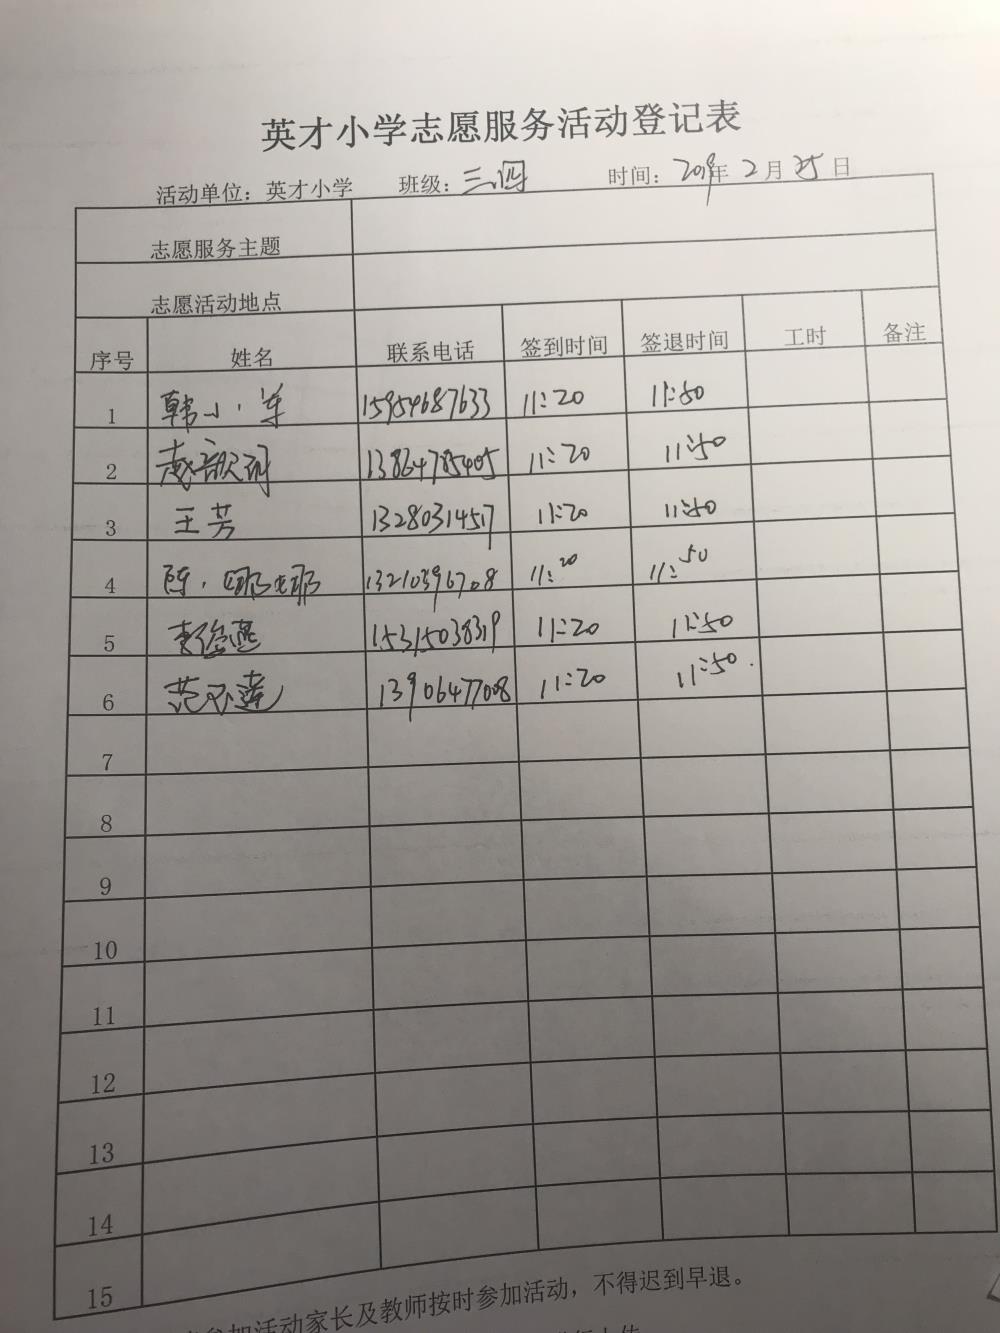 英才小学志愿服务活动登记表
活动单位：英才小学 班级：三.四 时间：2019年 2月 25日
志愿服务主题
志愿活动地点
序号 姓名 联系电话 签到时间 签退时间 工时 备注
1 韩小军 15954687633 11:20 11:50
2 13864785405 11:20 11:50
3 王芳 13280314517 11:20 11:50
4 陈 娜娜 13210396708 11:20 11:50
5 15315038319 11:20 11:50
6 13906477008 11:20 11:50
7
8
9
10
11
12
13
14
15
参加活动家长及教师按时参加活动，不得迟到早退。